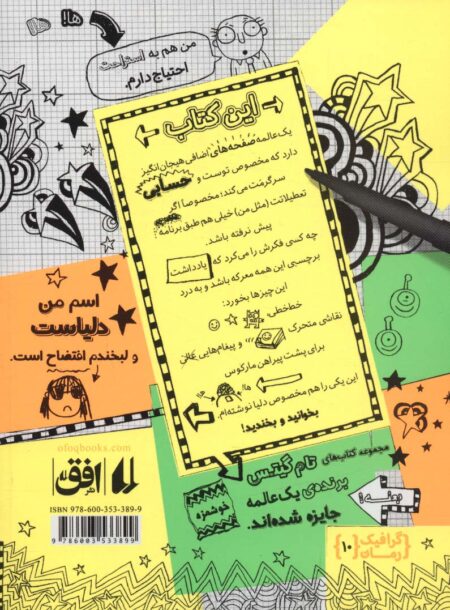 ها!
ها!
من هم به استراحت
احتیاج دارم.
این کتاب
یک عالمه صفحه‌های اضافی هیجان‌انگیز
دارد که مخصوص توست و حسابی
سرگرمت می‌کند؛ مخصوصا اگر
تعطیلاتت (مثل من) خیلی هم طبق برنامه
پیش نرفته باشد.
چه کسی فکرش را می‌کرد که یادداشت
برچسبی این همه معرکه باشد و به درد
این چیزها بخورد:
خط‌خطی،
نقاشی متحرک
و پیغام‌هایی
برای پشت پیراهن مارکوس
ها!
این یکی را هم مخصوص دلیا نوشته‌ام.
بخوانید و بخندید!
اسم من
دلیاست
و لبخندم افتضاح است.
مجموعه کتاب‌های تام گیتس
برنده‌ی یک عالمه
جایزه شده‌اند.
خوشمزه
ofoqbooks.com
افق
ISBN 978-600-353-389-9
9 786003 533899
گرافیک
رمان
۱۰